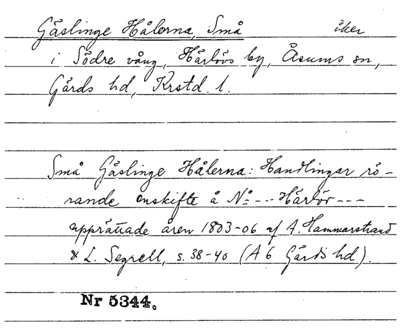 Gåslinge Hålerna, Små åker
i Södre vång, Härlövs by, Åsums sn,
Gärds hd, Krstd. l.
Små Gåslinge Hålerna: Handlingar rö-
rande enskifte å No --- Härlöv ---
upprättade åren 1803-06 af A. Hammarstrand
& L. Segrell, s. 38-40 (A 6 Gärds hd).
Nr 5344.